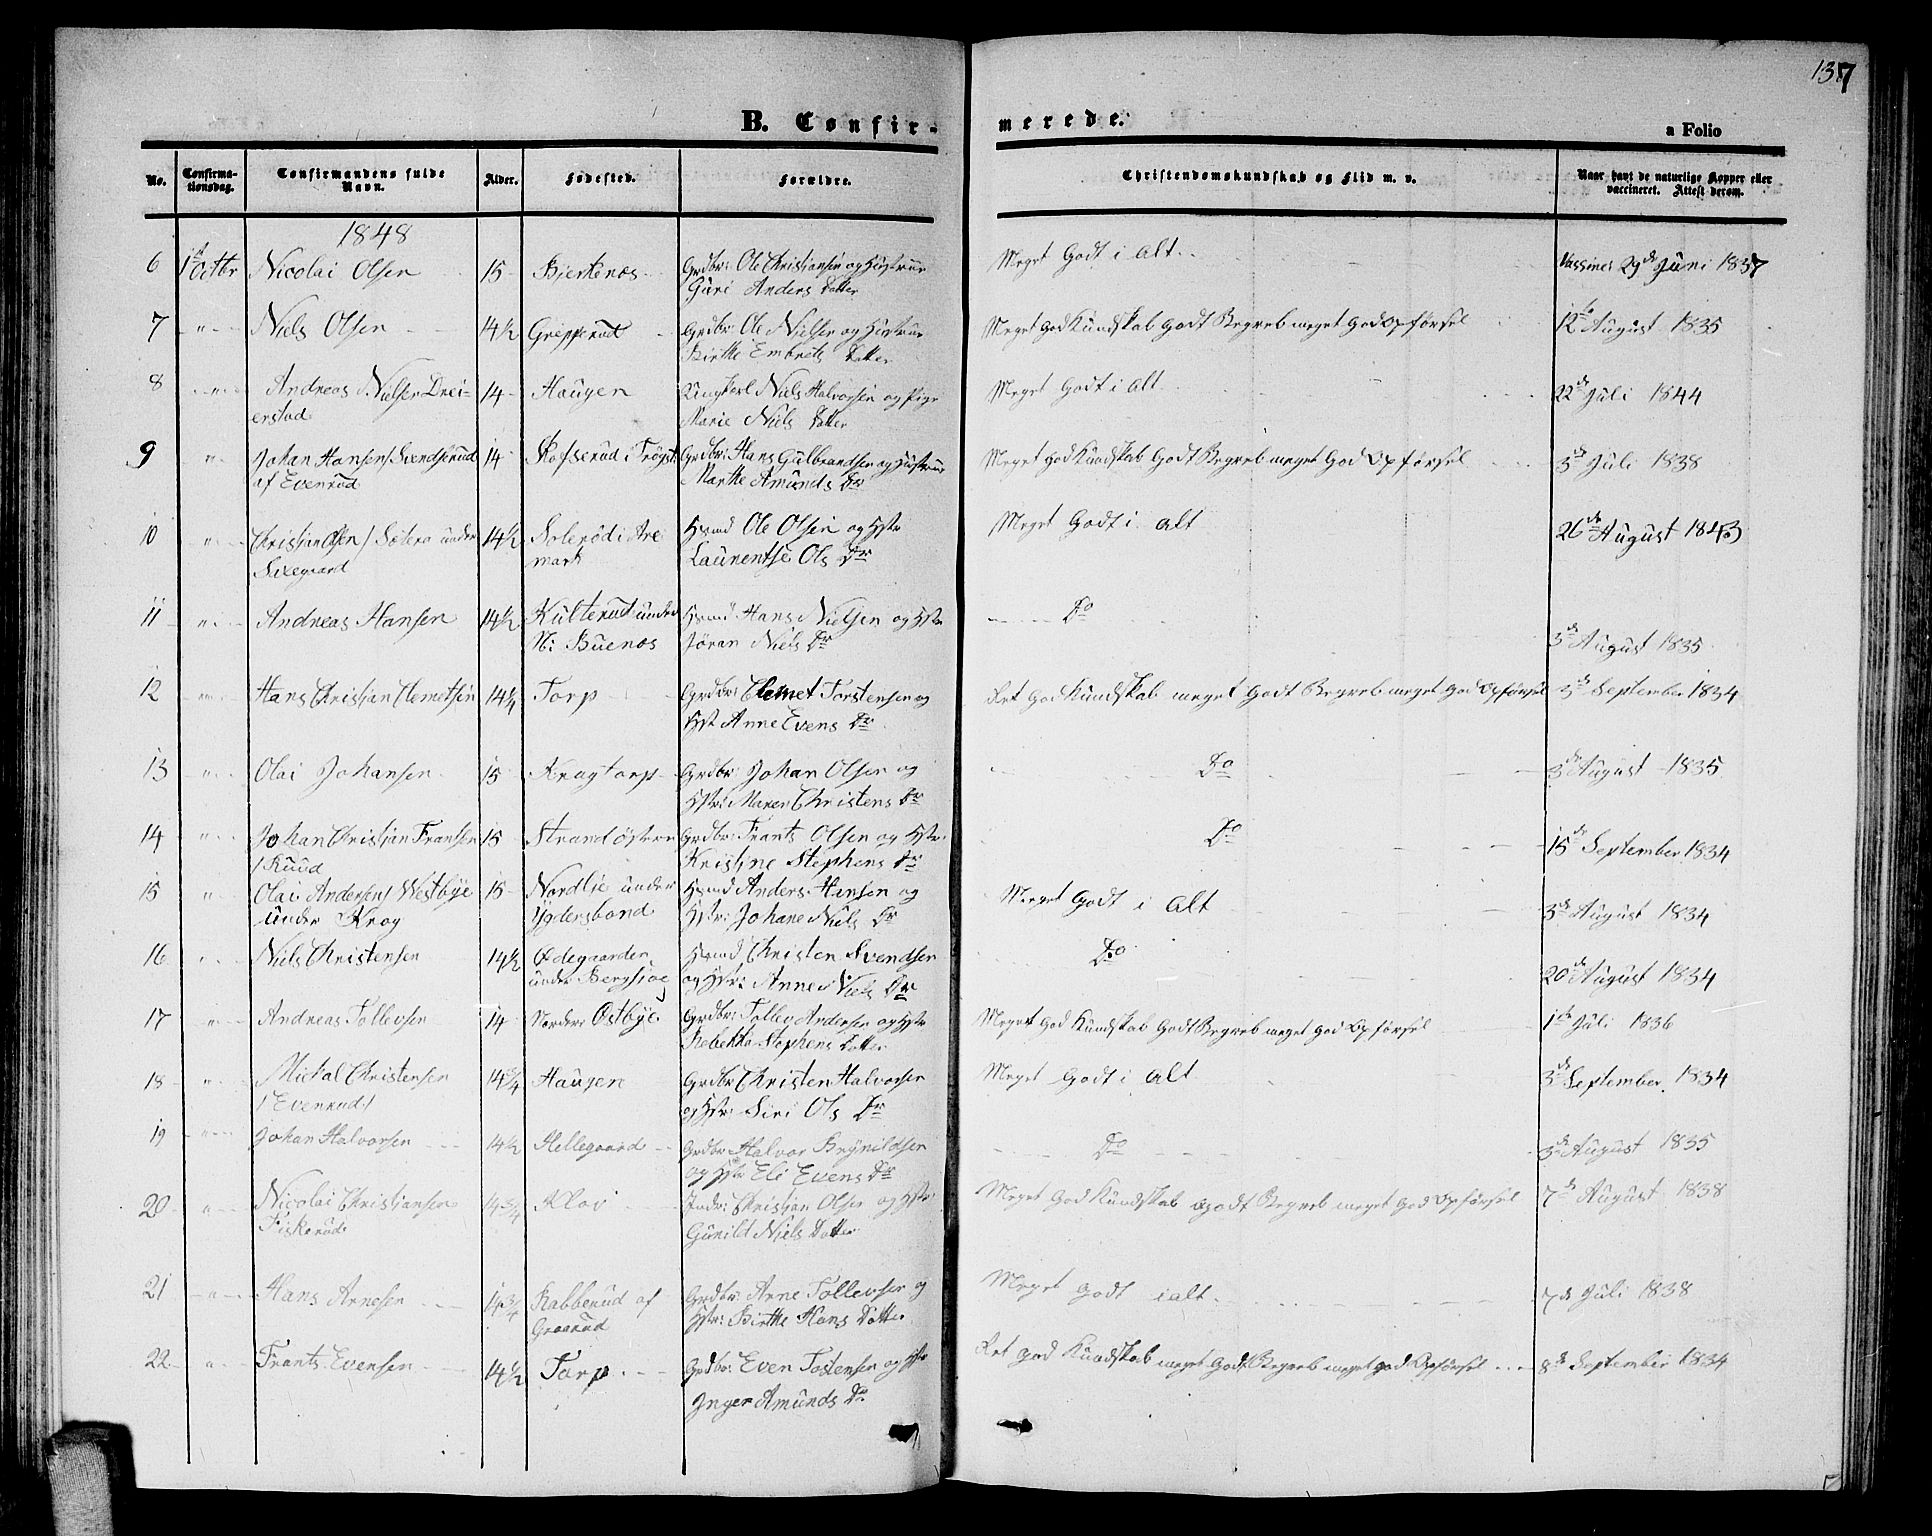 137
B. Confir-
merede.
a Folio
No.
Confirma-
tionsdag.
Confirmandens fulde
Navn.
Alder.
Fødested.
Forældre.
Christendomskundskab og Flid m. v.
Naar havt de naturlige Kopper eller
vaccineret. Attest derom.
1848
6 1st Octbr Nicolai Olsen 15 Bjerkenæs Grdbr: Ole Christiansen og Hustrue
Guri Anders Datter
Meget Godt i Alt. Vassineret 29de Juni 1837
7 Niels Olsen 14½ Grepperud Grdbr: Ole Nielsen og Hustrue
Birthe Embrets Datter
Meget God Kundskab Godt Begreb meget God Opførsel 12te August 1835
8 Andreas Nielsen Drei-
erstad
14 Haugen Ungkarl Niels Halvorsen og Pige
Marie Niels Datter
Meget Godt i Alt 22de Juli 1844
9 Johan Hansen Svendserud
af Evenrud
14 i Trøgst: Grdbr: Hans Gulbrandsen og Hustrue
Marthe Amunds Dr
Meget God Kundskab Godt Begreb meget God Opførsel 3de Juli 1838
10 Christian Olsen / Sætera under
14½ i Are
mark
Hsmd Ole Olsen og Hstr
Laurentse Ols Dr
Meget Godt i Alt 26de August 1843
11 Andreas Hansen 14½ Kulterud under
N: Buenæs
Hsmd Hans Nielsen og Hstr
Jøran Niels Dr
Do
3de August 1835
12 Hans Christian Clemetsen 14¼ Torp Grdbr: Clemet Torstensen og
Hst Anne Evens Dr
Ret God Kundskab meget Godt Begreb meget God Opførsel 3de September 1834
13 Olai Johansen 15 Kragtorp Grdbr: Johan Olsen og
Hstr: Maren Christens Dr
Do 3de August 1835
14 Johan Christian Fransen
/ Ruud
15 Strand østre Grdbr: Frants Olsen og Hstr:
Kristine Stephens Dr
Do 15de September 1834
15 Olai Andersen / Westbye
under Krog
15 Nordlie under
Ydersbond
Hsmd Anders Hansen og
Hstr: Johane Niels Dr
Meget Godt i Alt 3de August 1834
16 Niels Christensen 14½ Ødegaarden
under
Hsmd Christen Svendsen
og Hstr: Anne Niels Dr
Do 20de August 1834
17 Andreas Tollevsen 14 Nordere Østbye Grdbr: Tollev Andersen og Hstr
Rebekka Stephens Datter
Meget God Kundskab Godt Begreb meget God Opførsel 1ste Juli 1836
18 Mickal Christensen
/ Evenrud /
14¾ Haugen Grdbr Christen Halvorsen
og Hstr: Siri Ols Dr
Meget Godt i Alt 3de September 1834
19 Johan Halvorsen 14½ Hellegaard Grdbr Halvor Brynildsen
og Hstr Eli Evens Dr
Do 3de August 1835
20 Nicolai Christiansen
Fiskerud
14¾ Klov Indr: Christian Olsen og Hstr:
Gunild Niels Datter
Meget God Kundskab Godt Begreb meget God Opførsel 7de August 1838
21 Hans Arnesen 14¾ Rabberud af
Graarud
Grdbr: Arne Tollevsen og
Hstr: Birthe Hans Datter
Meget Godt i alt. 7de Juli 1838
22 Frants Evensen 14½ Torp Grdbr: Even Tostensen og Hstr
Inger Amunds Dr
Ret God Kundskab meget Godt Begreb meget god Opførsel 8de September 1834